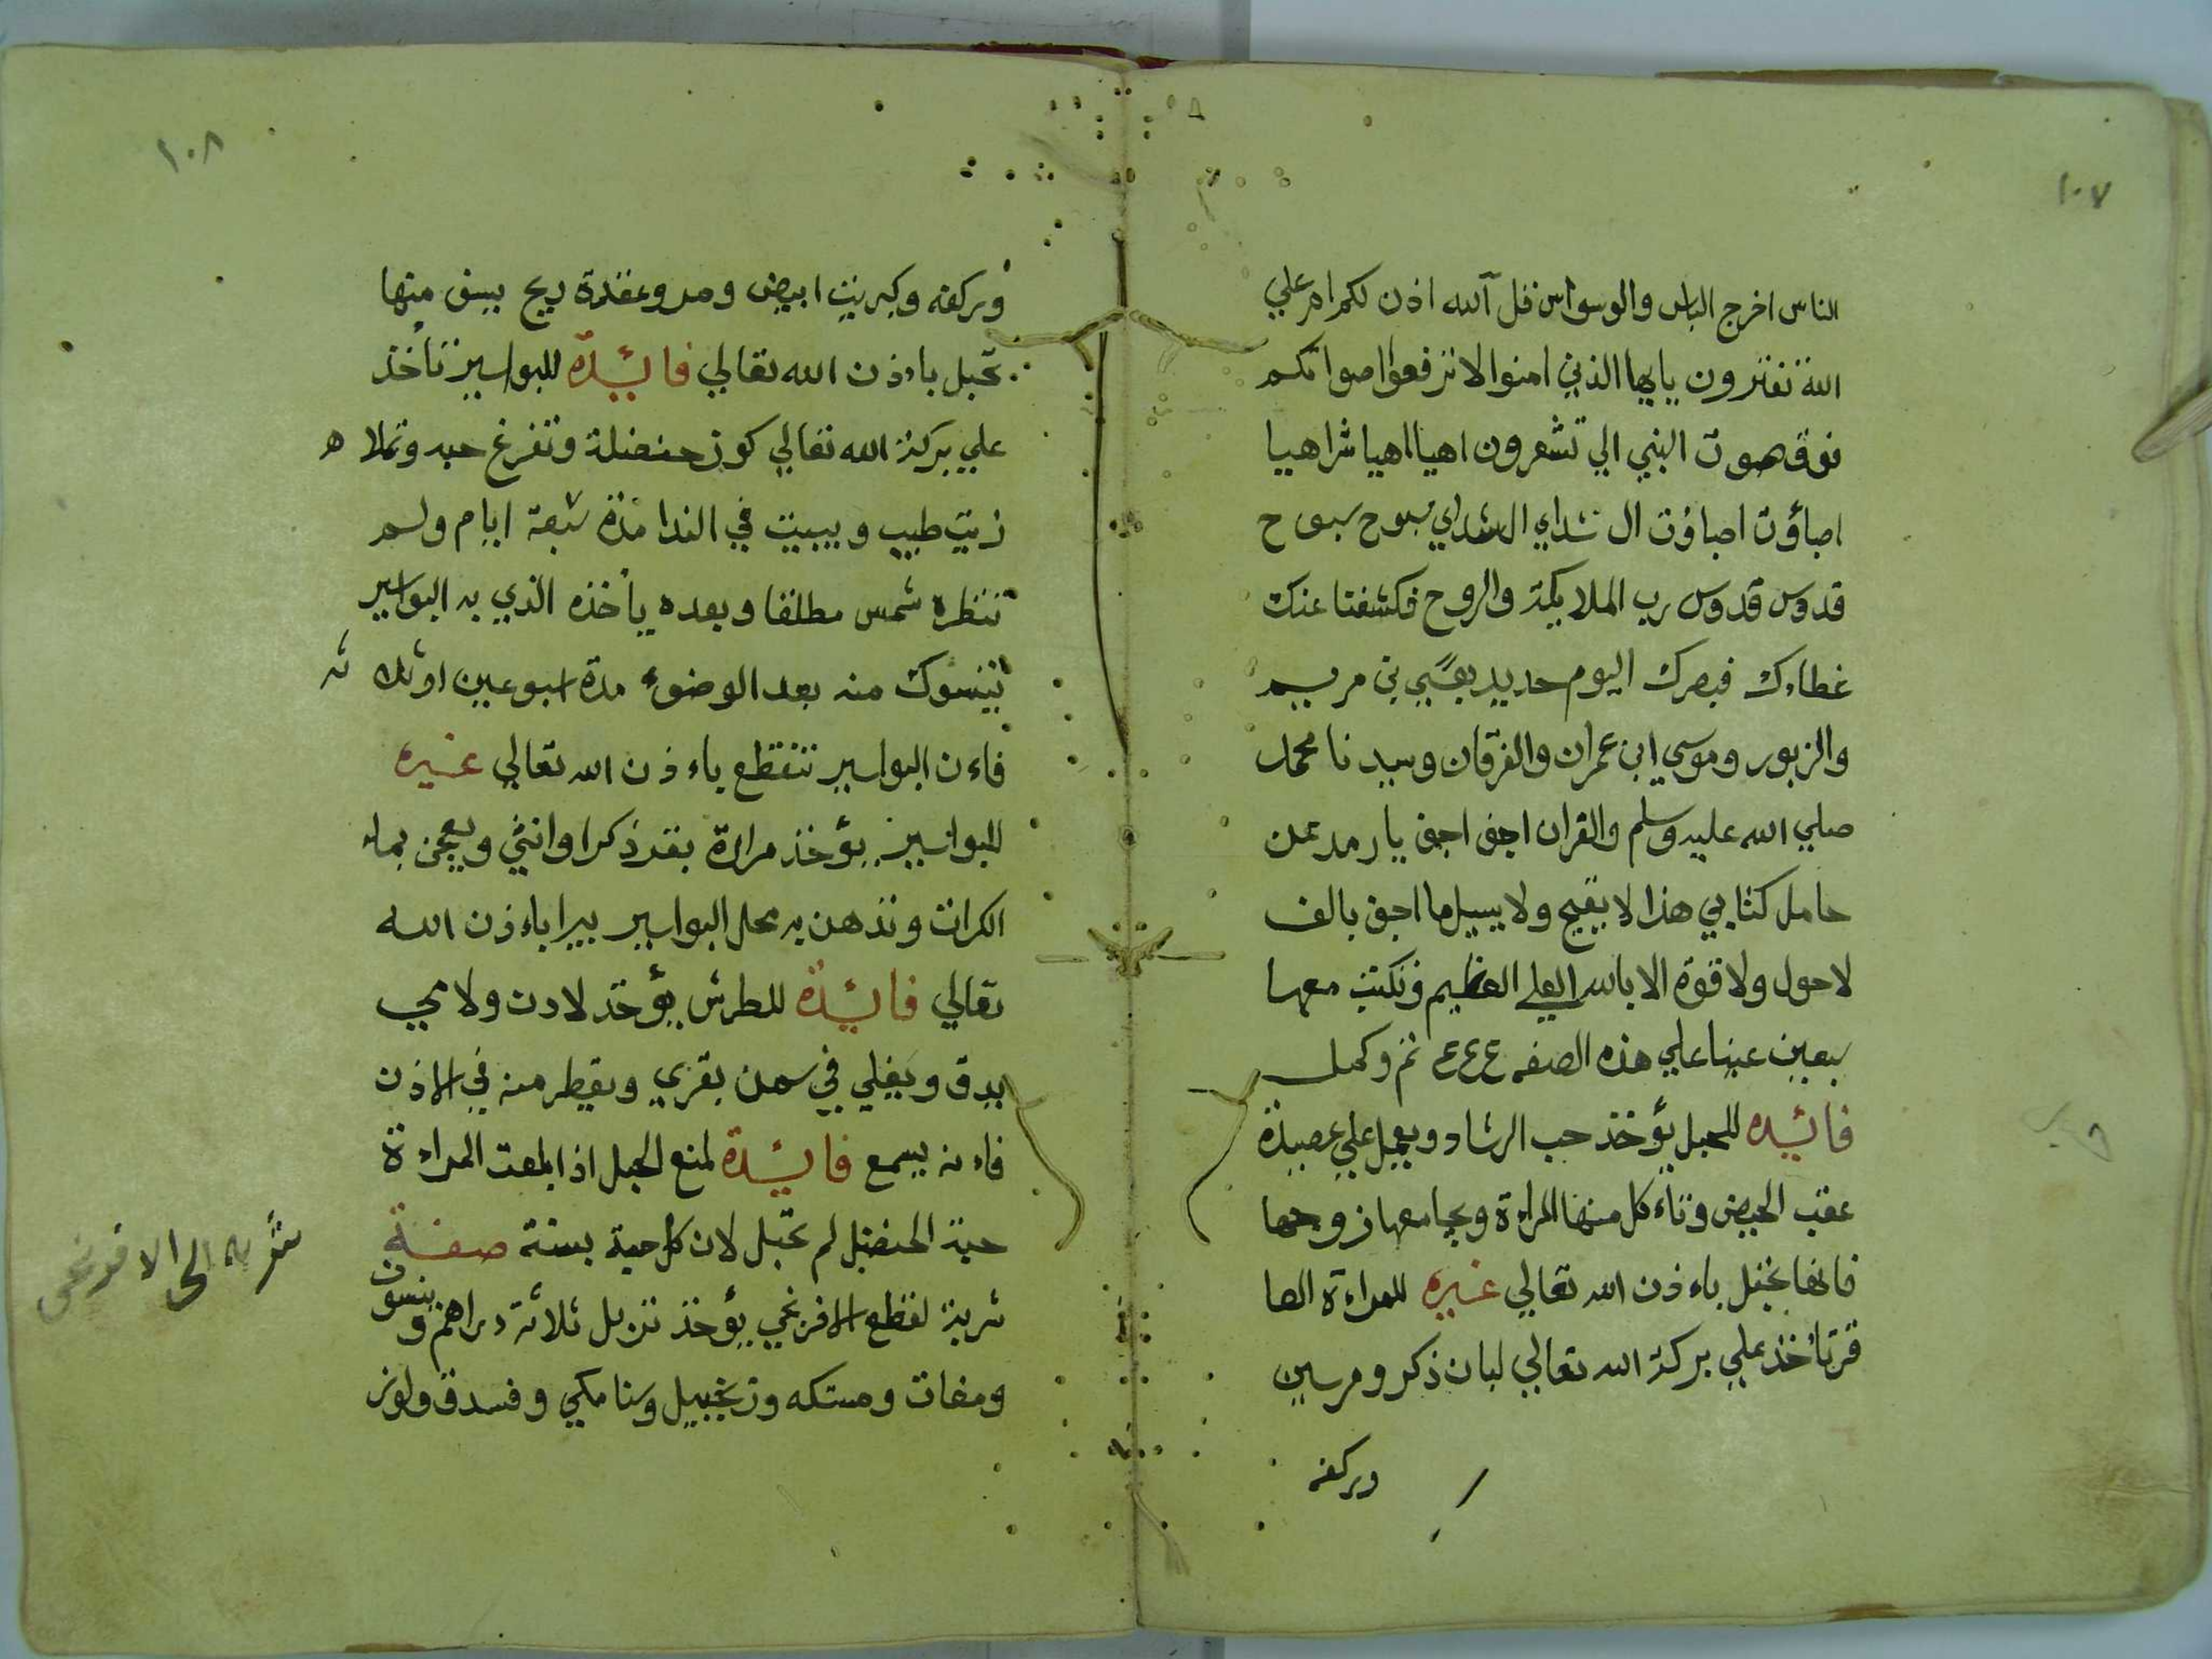 ١٠٧
الناس اخرج الباس والوسواس قل آلله اذن لكم ام علي
الله تفترون يايها الذين امنوا لا ترفعوا اصواتكم
فوق صوت النبي الي تشعرون اهيا اهيا شراهيا
اصبأوت اصباوت ال شداي ال شداي سبوح سبوح
قدوس قدوس رب الملايكة والروح فكشفنا عنك
غطاءك فبصرك اليوم حديد بعيسي بن مريم
والزبور وموسي ابن عمران والفرقان وسيدنا محمد
صلي الله عليه وسلم والقران اجق اجق يا رمد عن
حامل كتابي هذا لا يقيح ولا يسيل ما اجق بالف
لا حول ولا قوة الا بالله العلي العظيم وتكتب معها
سبعين عينا علي هذه الصفه ع ع ع تم وكمل
فائده للحبل يؤخذ حب الرشاد ويعمل علي عصيدة
عقب الحيض وتاءكل منها المراءة ويجامعها زوجها
فانها تحبل باءذن الله تعالي غيره للمراءة العا
قر تأخذ علي بركة الله تعالي لبان ذكر ومرسين
وبركفه
١٠٨
وبركفه وكبريت ابيض ومر وعقدة ريح يسق منها
تحبل باءذن الله تعالي فائدة للبواسير تأخذ
علي بركة الله تعالي كوز حنضلة وتفرغ حبه وتملاه
زيت طيب ويبيت في الندا مدة سبعة ايام ولم
تنظره شمس مطلقا وبعده ياخذه الذي به البواسير
يتسوك منه بعد الوضوء مدة اسبوعين او ثلاثه
فاءن البواسير تنقطع باءذن الله تعالي غيره
للبواسير يؤخذ مرارة بقر ذكرا وانثي ويعجن بماء
الكرات وتدهن به محل البواسير يبرا باءذن الله
تعالي فائدة للطرش يؤخذ لادن ولامي
يدق ويغلي في سمن بقري ويقطر منه في الاذن
فاءنه يسمع فائدة لمنع الحبل اذا ابلعت المراءة
حبة الحنضل لم تحبل لان كل حبة بسنة صفة
شربة لقطع الافرنجي يؤخذ تربل ثلاثة دراهم وينسون
ومغات ومستكه وزنجبيل وسنامكي وفسدق ولوز
شربه الى الافرنجى